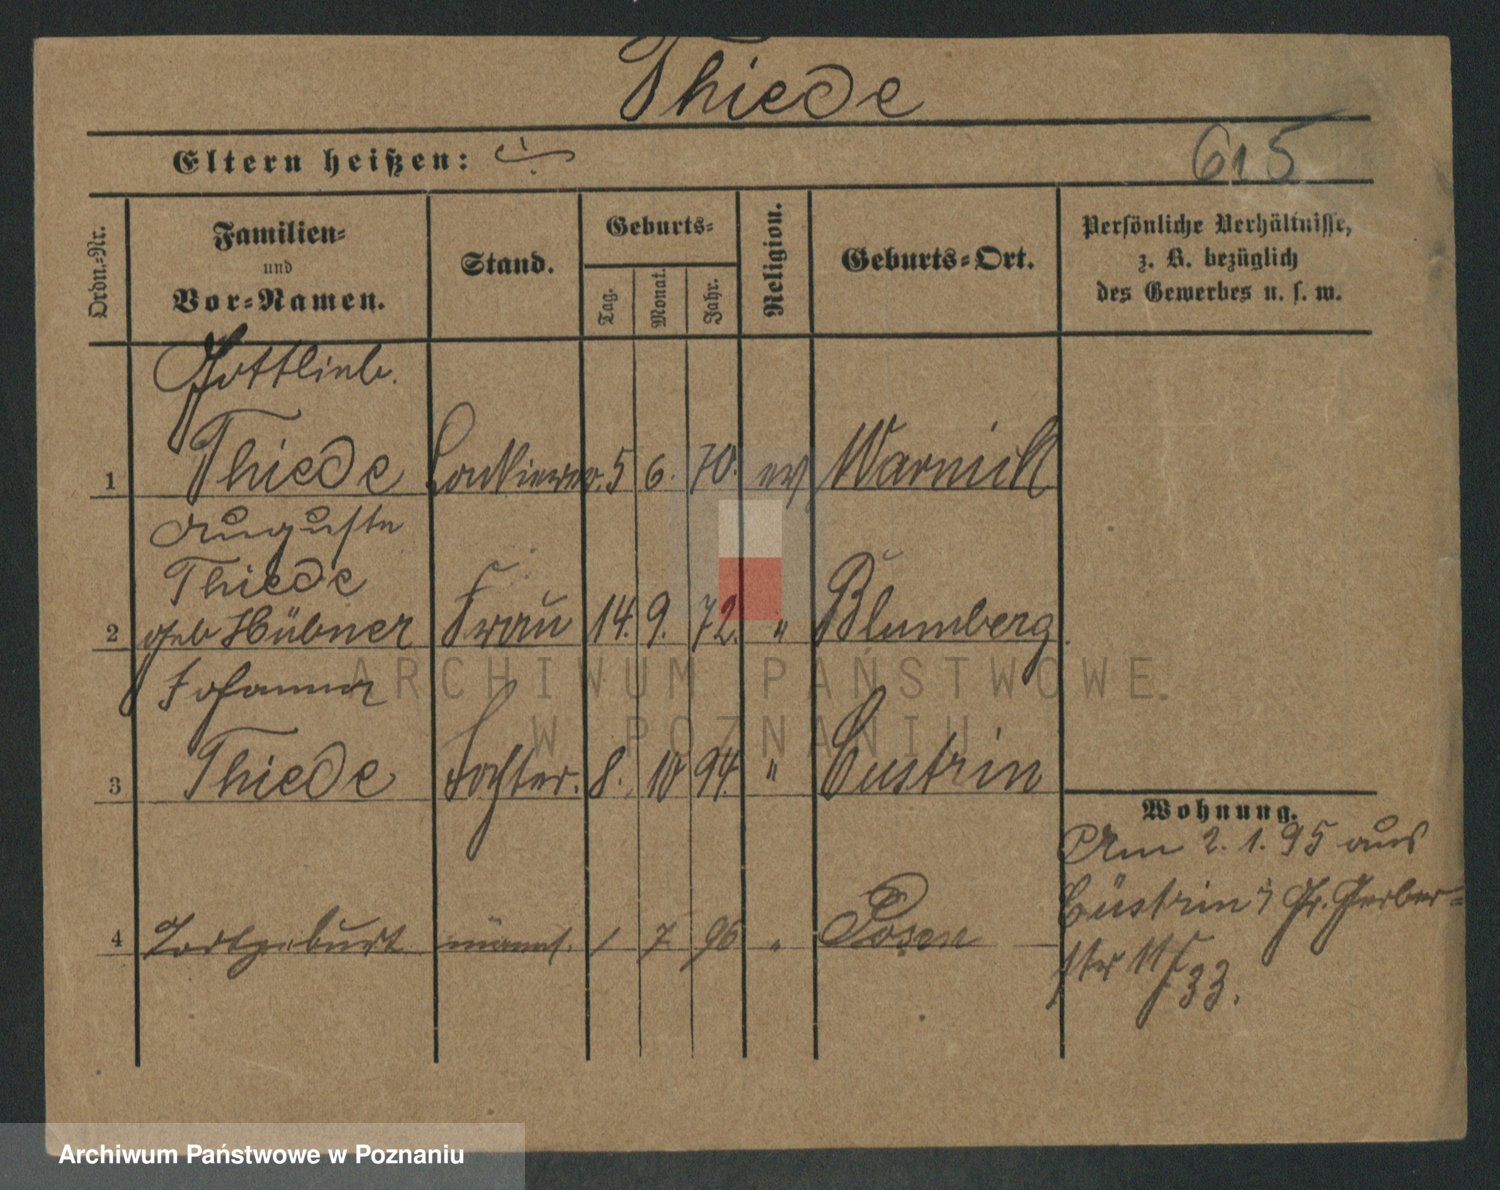 Thiede
Eltern heißen: ÷
615
Ordn.-Nr.
Familien-
und
Vor-Namen.
Stand.
Geburts-
Tag.
Monat.
Jahr.
Religion.
Geburts-Ort.
Persönliche Verhältnisse,
z. B. bezüglich
des Gewerbes u. s. w.
Gottlieb.
1 Thiede Lackierer. 5 6. 70. ev Warnick
Auguste
Thiede
2 geb Hübner Frau 14. 9. 72. " Blumberg
Johanna
3 Thiede Tochter. 8. 10 94. " Cüstrin
Wohnung.
Am 2. 1. 95 aus
Cüstrin Gr. Gerber-
4 Todtgeburt männl. 1 7 96 " Posen
str
33.
ARCHIWUM PAŃSTWOWE
W POZNANIU
Archiwum Państwowe w Poznaniu